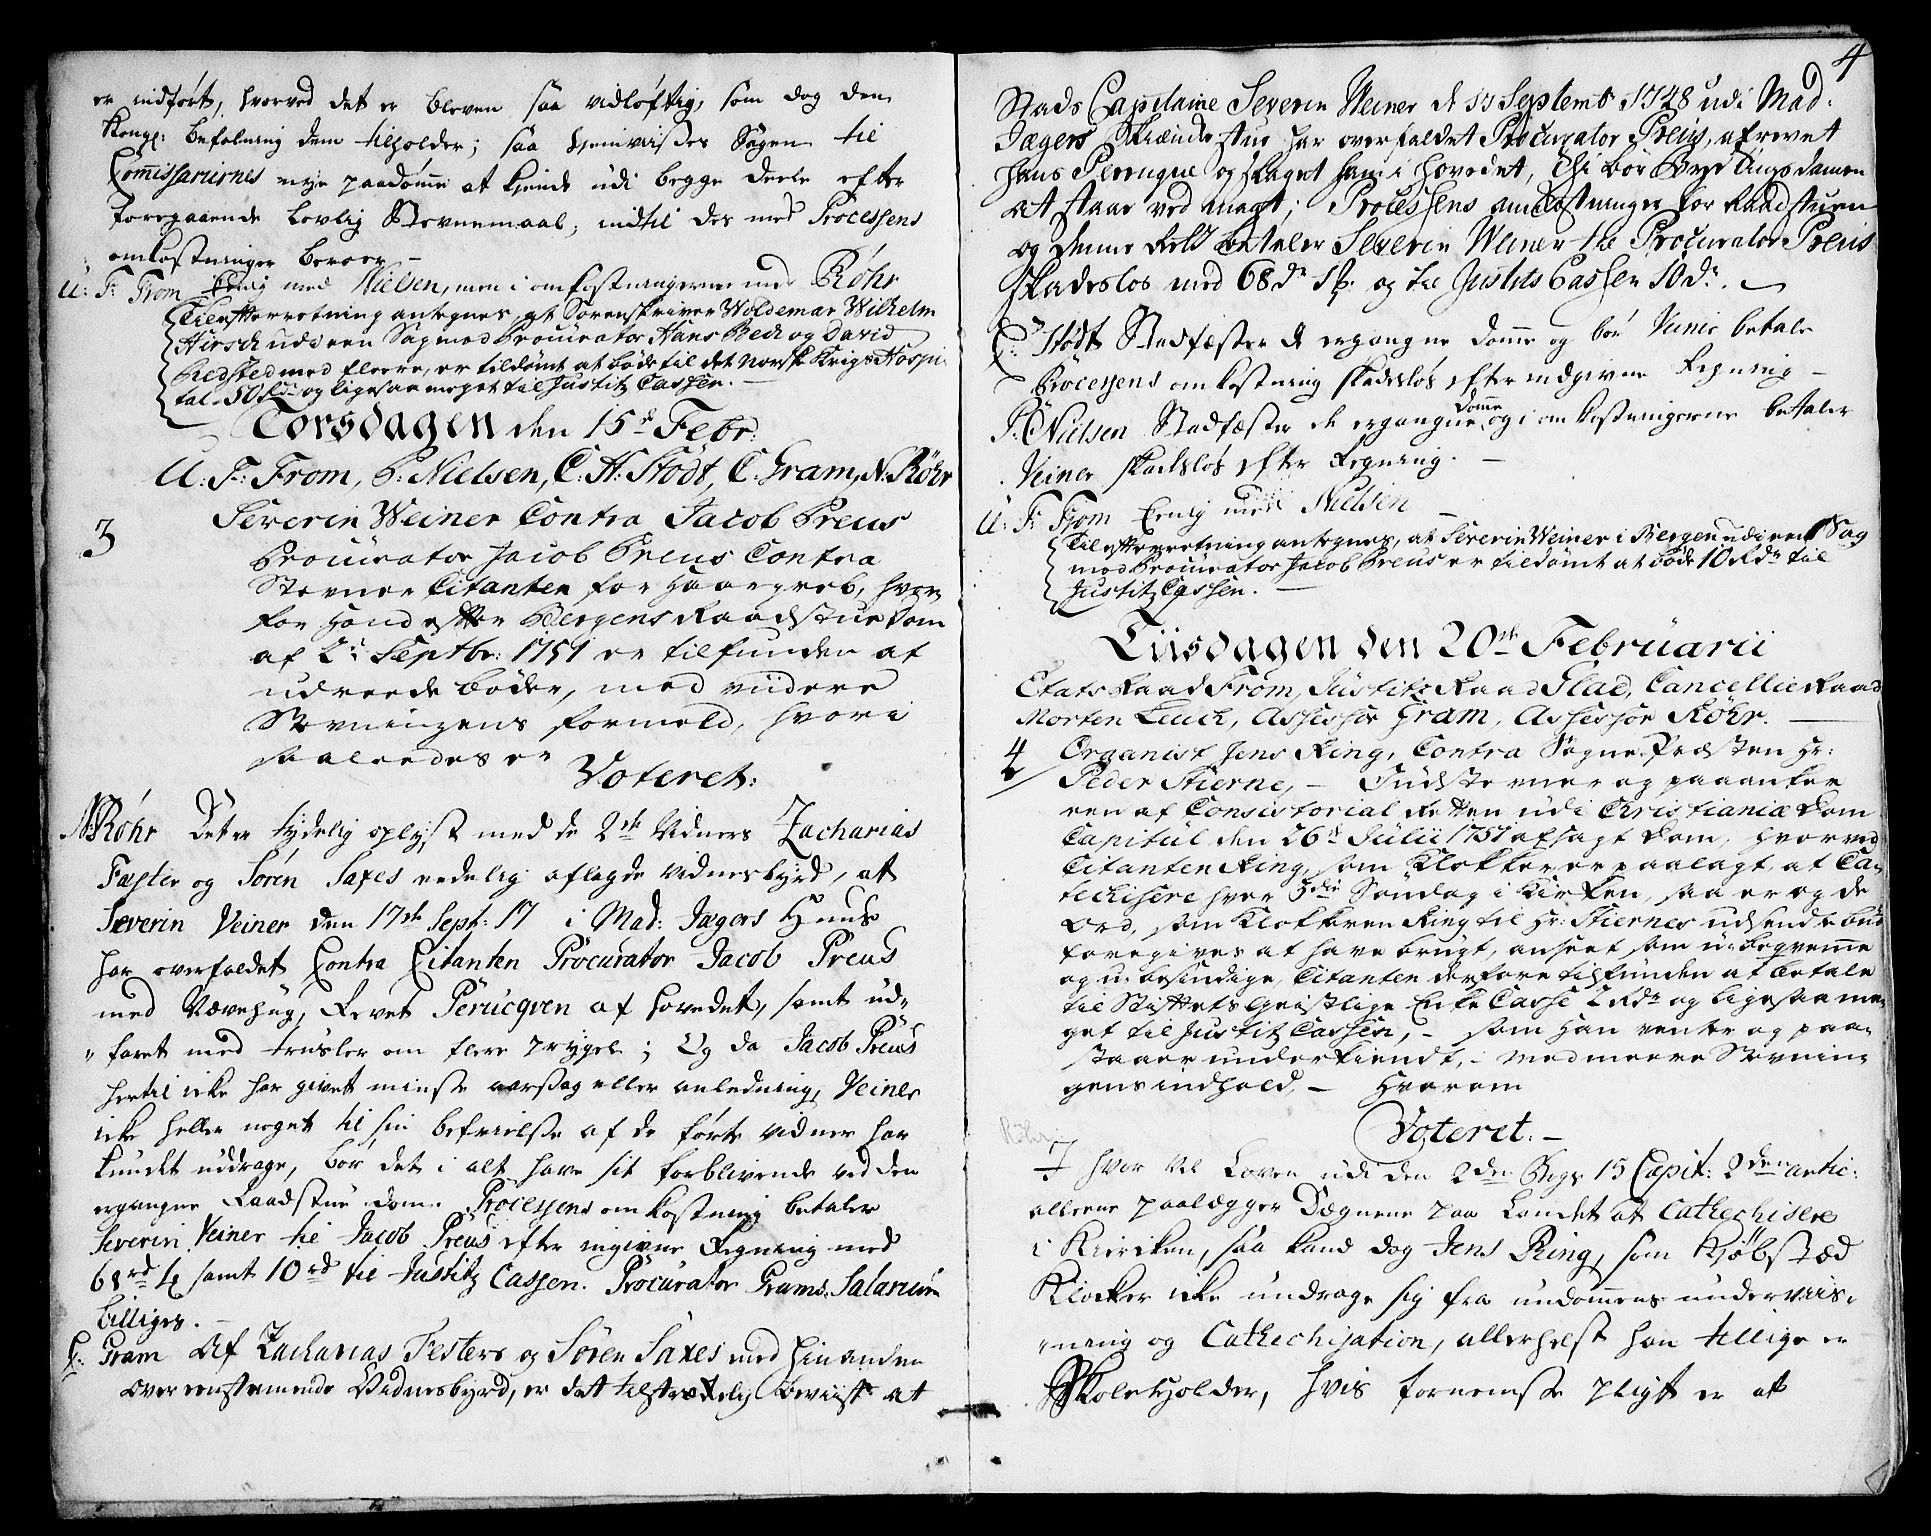 er indført, hvorved det er bleven saa vidløftig, som dog den
Kongl: befalning dem tilholder; saa hjemvises Sagen til
Commissariernes nye paadømme at kiende udi begge deele efter
foregaaende lovlig Stevnemaal, indtil des med Processens
omkostninger beroer –
U: F: From Eenig med Nielsen, men i omkostningerne med Røhr
Til Efterretning antegnes, at Sorenskriver Woldemar Wilhelm
Hirsch udi een Sag mod Procurator Hans Bech og David
Redsted med fleere, er tildømt at bøde til det Norske Krigs Hospi-
tal 50 Rdr og ligesaa meget til Justitz Cassen. –
Torsdagen den 15de Febr:
U: F: From, P: Nielsen, C: H: Stodt, C. Gram, N: Røhr
3
Severin Weiner Contra Jacob Preus
Procurator Jacob Preus Contra
Stevner Citanten for Haargreb, hvor,
for Hand efter Bergens Raadstue Dom
af 2: Septbr: 1751 er tilfunden at
udreede bøder, med viidere
Stevningens formeld, hvori
saaleedes er
Voteret:
N: Røhr Det er tydelig oplyst med de 2de Vidners Zacharias
Faster og Søren Saxes eedelig aflagde vidnesbyrd, at
Severin Veiner den 17de Sept: 17 i Mad: Jægers Huus
har overfaldet Contra Citanten Procurator Jacob Preus
med Nævehug, Revet Perucqven af hovedet, samt ud-
faret med trusler om flere prygel; Og da Jacob Preus
hertil icke har givet minste aarsag eller anledning, Veiner
icke heller noget til sin befrielse af de førte vidner har
kundet uddrage, bør det i alt have sit forblivende ved den
ergangne Raadstue dom. Processens omkostning betaler
Severin Veiner til Jacob Preus efter ingivne Regning med
68rd 4 samt 10rd til Justitz Cassen. Procurator Grams Salarium
billiges. –
C: Gram Af Zacharias Festers og Søren Saxes med hinanden
overeenstemende Vidnesbyrd, er det tilstrækkelig beviist at
4
Stads Capitaine Severin Weiner d 17 Septembr 1748 udi Mad:
Jægers Skiænkestue har overfaldet Procurator Preus, afrevet
hans Perruque og slaget ham i hovedet, Thi bør Byetingsdomen
at staae ved magt; Processens omkostninger for Raadstuen
og denne Rett betaler Severin Weiner til Procurator Preus
skadesløs med 68 dr 1 ß: og til Justits Cassen 10 dr. –
C: Stodt Stadfæster de ergangne domme og bør Veiner betale
Processens omkostning skadesløs efter indgivne Regning –
P: Nielsen Stadfæster de ergangne domme og i omkostningerne betaler
Veiner skadesløs efter Regning. –
U: F: From Eenig med Nielsen –
Til Efterretning antegnes, at Severin Weiner i Bergen udi een Sag
mod Procurator Jacob Preus er tildømt at bøde 10 Rdr til
Justitz Cassen. –
Tiisdagen den 20de Februarii
Etats Raad From, Justits Raad Flad, Cancellie Raad
Morten Leuch, Assessor Gram, Assessor Røhr. –
4
Organist Jens Ring, Contra Sogne Præsten Hr:
Peder Stierne, – Indstevner og paaanker
een af Consistorial Retten udi Christiania Dom
Capitul den 26de Julii 1751 afsagt Dom, hvorved
Citanten Ring, som Klokker er paalagt at Ca-
techisere hver 3die Søndag i Kirken, saa er og de
ord, som Klokkeren Ring til Hr: Stiernes udsendebud
foregives at have brugt, anseet som ubeqveme
og ubesindige, Citanten derfore tilfunden at betale
til Stiftets Geistlige Enke Casse 2 Rdr og ligesaa me-
get til Justitz Cassen, – som han venter og paa-
staaer underkiendt, – med meere Stevnin-
gens indhold, – Hvorom
Voteret. –
Røhr
I hvor vel Loven udi den 2den Bogs 15 Capit: 2den artic:
allene paalægger Degnene paa Landet at Cathechisere
i Kiricken, saa kand dog Jens Ring, som Kiøbstæd
Klocker icke undrage sig fra undommens underviis-
ning og Cathechisation, allerhelst han tillige er
Skoleholder, hvis fornemste pligt er at